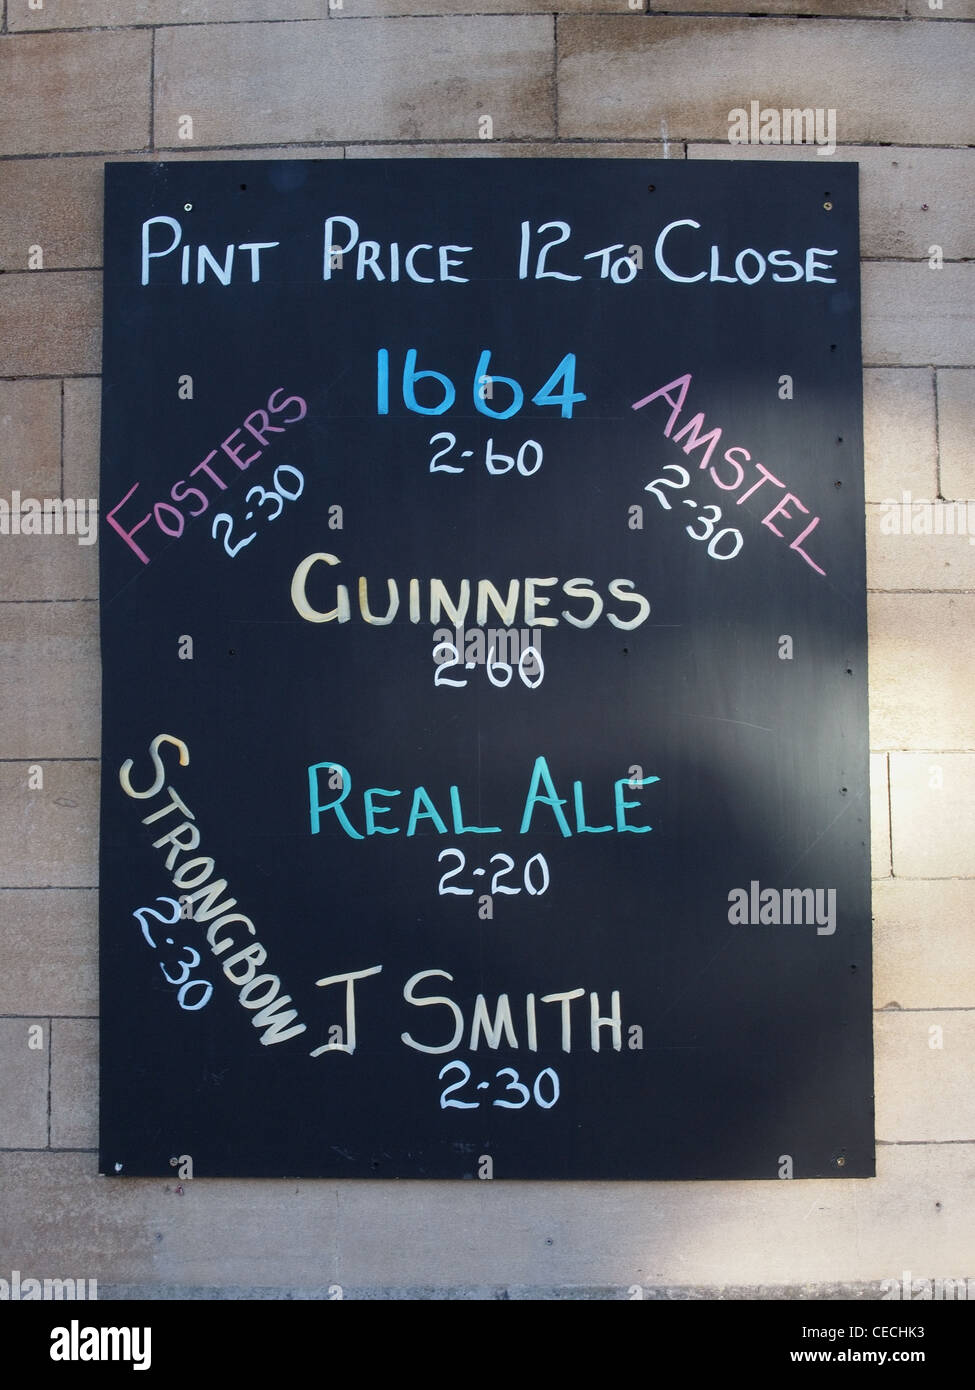 PINT PRICE 12 TO CLOSE
1664
2-60
FOSTERS
2-30
AMSTEL
2-30
GUINNESS
2-60
REAL ALE
2-20
STRONGBOW
2-30
J SMITH
2-30
alamy
alamy
a
alamy
Image ID: CECHK3
www.alamy.com